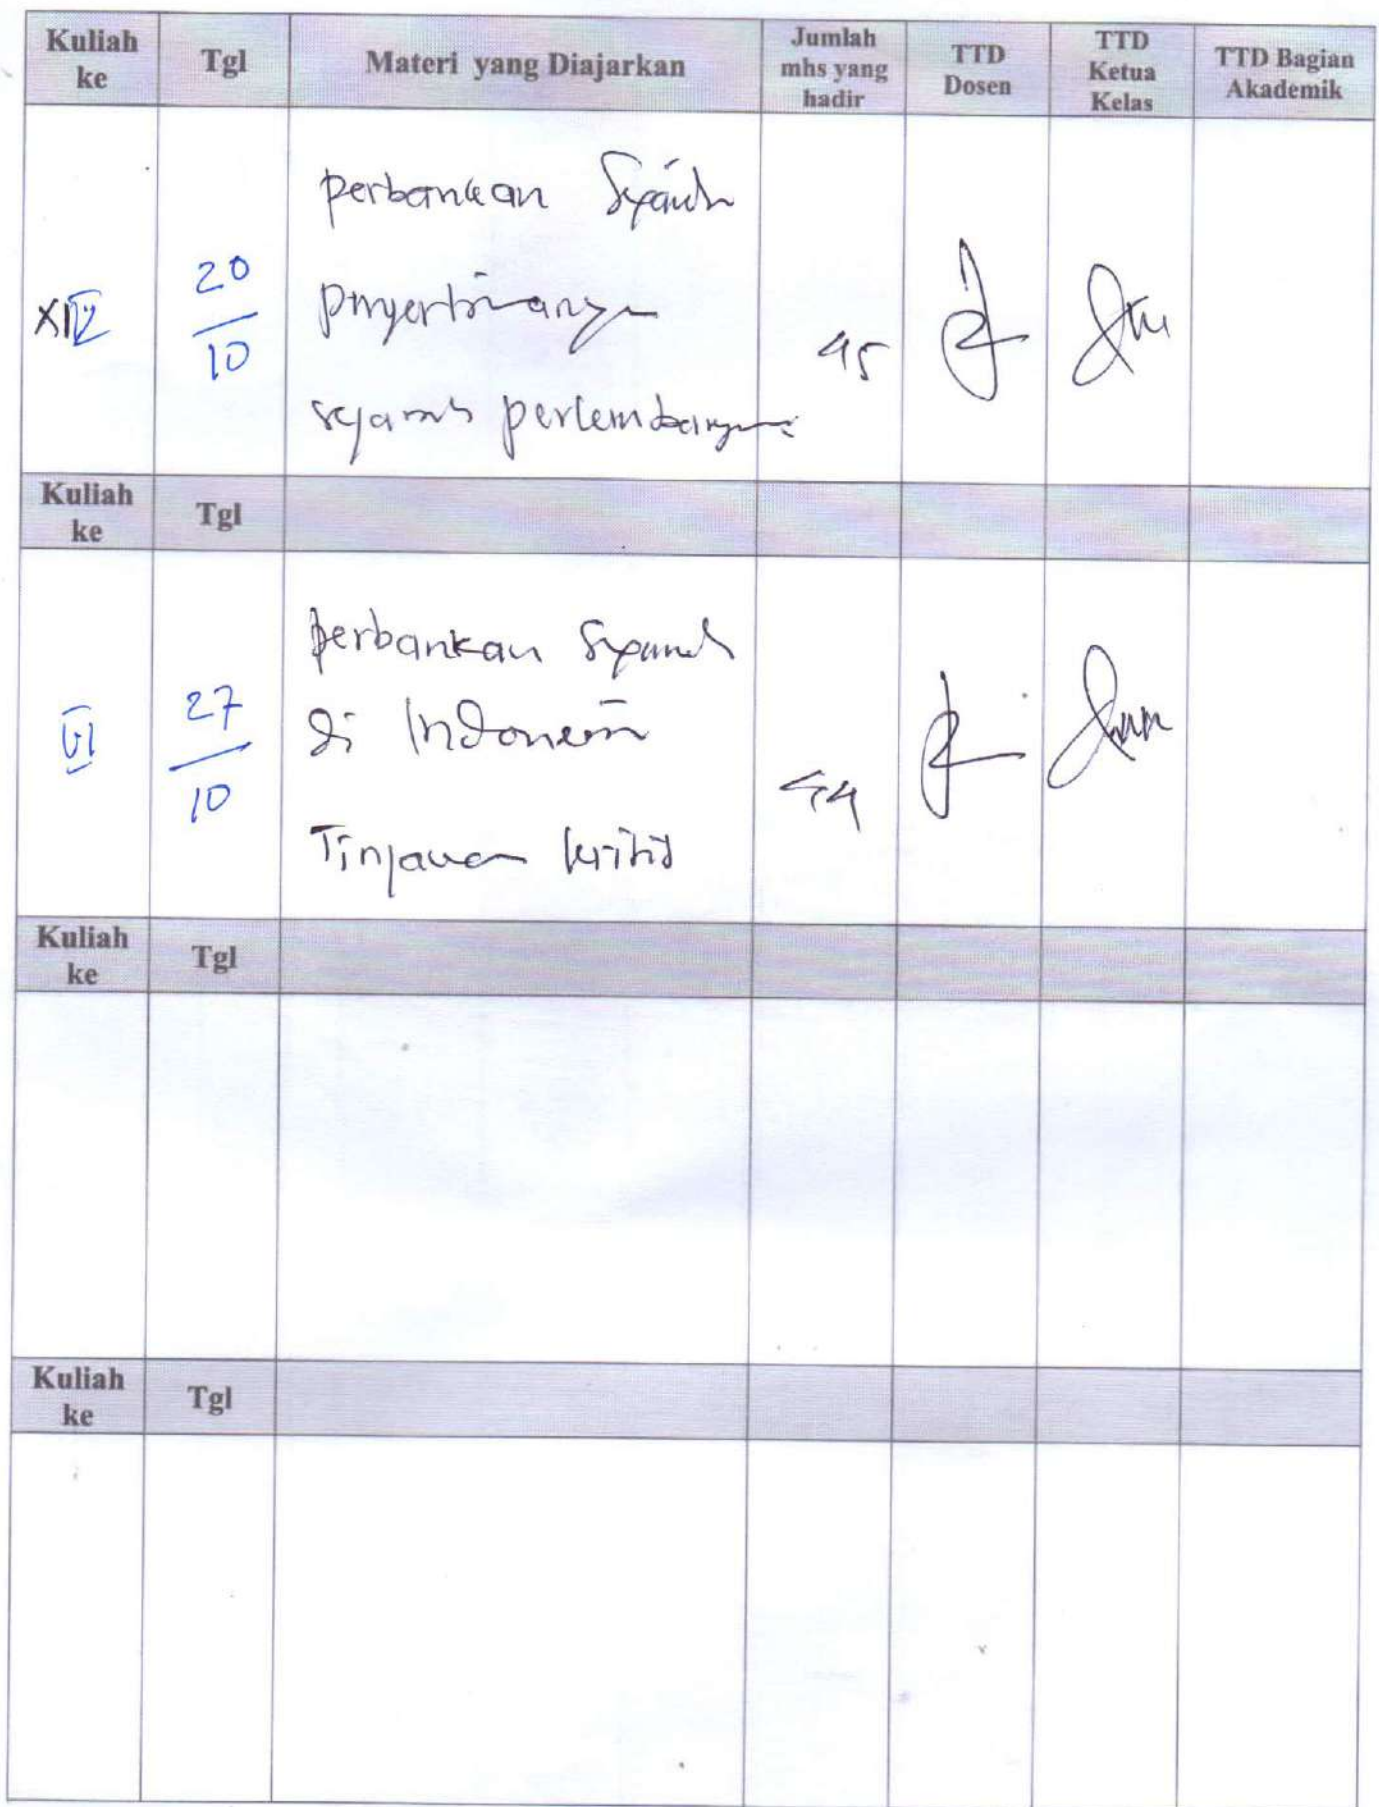 Kuliah ke Tgl Materi yang Diajarkan Jumlah mhs yang hadir TTD Dosen TTD Ketua Kelas TTD Bagian Akademik
perbankan Syariah
20/10
pengertiannya
45
sejarah perkembangan
Kuliah ke Tgl
perbankan Syariah
VI 27/10 di Indonesia
44
Tinjauan kritis
Kuliah ke Tgl
Kuliah ke Tgl